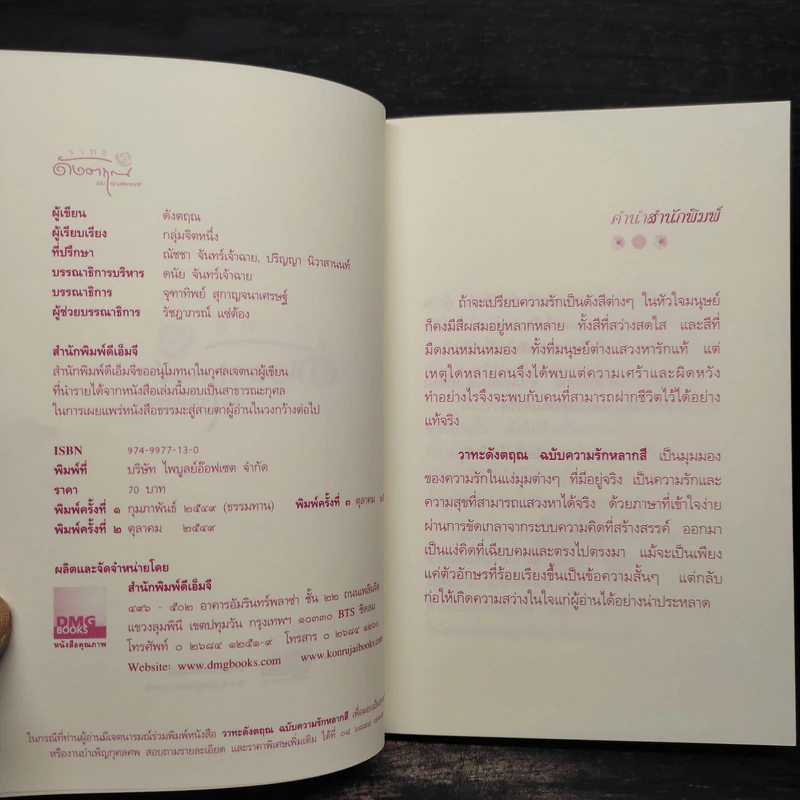 วาทะ
ดังตฤณ
ฉบับ ความรักหลากสี
ผู้เขียน ดังตฤณ
ผู้เรียบเรียง กลุ่มจิตหนึ่ง
ที่ปรึกษา ณัชชา จันทร์เจ้าฉาย, ปริญญา นิวาสานนท์
บรรณาธิการบริหาร ดนัย จันทร์เจ้าฉาย
บรรณาธิการ จุฑาทิพย์ สุกาญจนาเศรษฐ์
ผู้ช่วยบรรณาธิการ รัชฎาภรณ์ แซ่ต้อง
สำนักพิมพ์ดีเอ็มจี
สำนักพิมพ์ดีเอ็มจีขออนุโมทนาในกุศลเจตนาผู้เขียน
ที่นำรายได้จากหนังสือเล่มนี้มอบเป็นสาธารณะกุศล
ในการเผยแพร่หนังสือธรรมะสู่สายตาผู้อ่านในวงกว้างต่อไป
ISBN 974-9977-13-0
พิมพ์ที่ บริษัท ไพบูลย์อ๊อฟเซต จำกัด
ราคา 70 บาท
พิมพ์ครั้งที่ ๑ กุมภาพันธ์ ๒๕๔๙ (ธรรมทาน) พิมพ์ครั้งที่ ๓ ตุลาคม
พิมพ์ครั้งที่ ๒ ตุลาคม ๒๕๔๙
ผลิตและจัดจำหน่ายโดย
สำนักพิมพ์ดีเอ็มจี
๔๙๖ - ๕๐๒ อาคารอัมรินทร์พลาซ่า ชั้น ๒๒ ถนนเพลินจิต
แขวงลุมพินี เขตปทุมวัน กรุงเทพฯ ๑๐๓๓๐ BTS ชิดลม
โทรศัพท์ ๐ ๒๖๘๔ ๑๒๕๑-๙ โทรสาร ๐ ๒๖๘๔ ๑๒๖๐
Website: www.dmgbooks.com www.konrujai​books.com
DMG
BOOKS
หนังสือคุณภาพ
ในกรณีที่ท่านผู้อ่านมีเจตนารมณ์ร่วมพิมพ์หนังสือ วาทะดังตฤณ ฉบับความรักหลากสี เพื่อมอบเป็น
หรืองานบำเพ็ญกุศลศพ สอบถามรายละเอียด และราคาพิเศษเพิ่มเติม ได้ที่ ๐๘ ๖๘๘๘
คำนำสำนักพิมพ์
ถ้าจะเปรียบความรักเป็นดังสีต่างๆ ในหัวใจมนุษย์
ก็คงมีสีผสมอยู่หลากหลาย ทั้งสีที่สว่างสดใส และสีที่
มืดมนหม่นหมอง ทั้งที่มนุษย์ต่างแสวงหารักแท้ แต่
เหตุใดหลายคนจึงได้พบแต่ความเศร้าและผิดหวัง
ทำอย่างไรจึงจะพบกับคนที่สามารถฝากชีวิตไว้ได้อย่าง
แท้จริง
วาทะดังตฤณ ฉบับความรักหลากสี เป็นมุมมอง
ของความรักในแง่มุมต่างๆ ที่มีอยู่จริง เป็นความรักและ
ความสุขที่สามารถแสวงหาได้จริง ด้วยภาษาที่เข้าใจง่าย
ผ่านการขัดเกลาจากระบบความคิดที่สร้างสรรค์ ออกมา
เป็นแง่คิดที่เฉียบคมและตรงไปตรงมา แม้จะเป็นเพียง
แค่ตัวอักษรที่ร้อยเรียงขึ้นเป็นข้อความสั้นๆ แต่กลับ
ก่อให้เกิดความสว่างในใจแก่ผู้อ่านได้อย่างน่าประหลาด